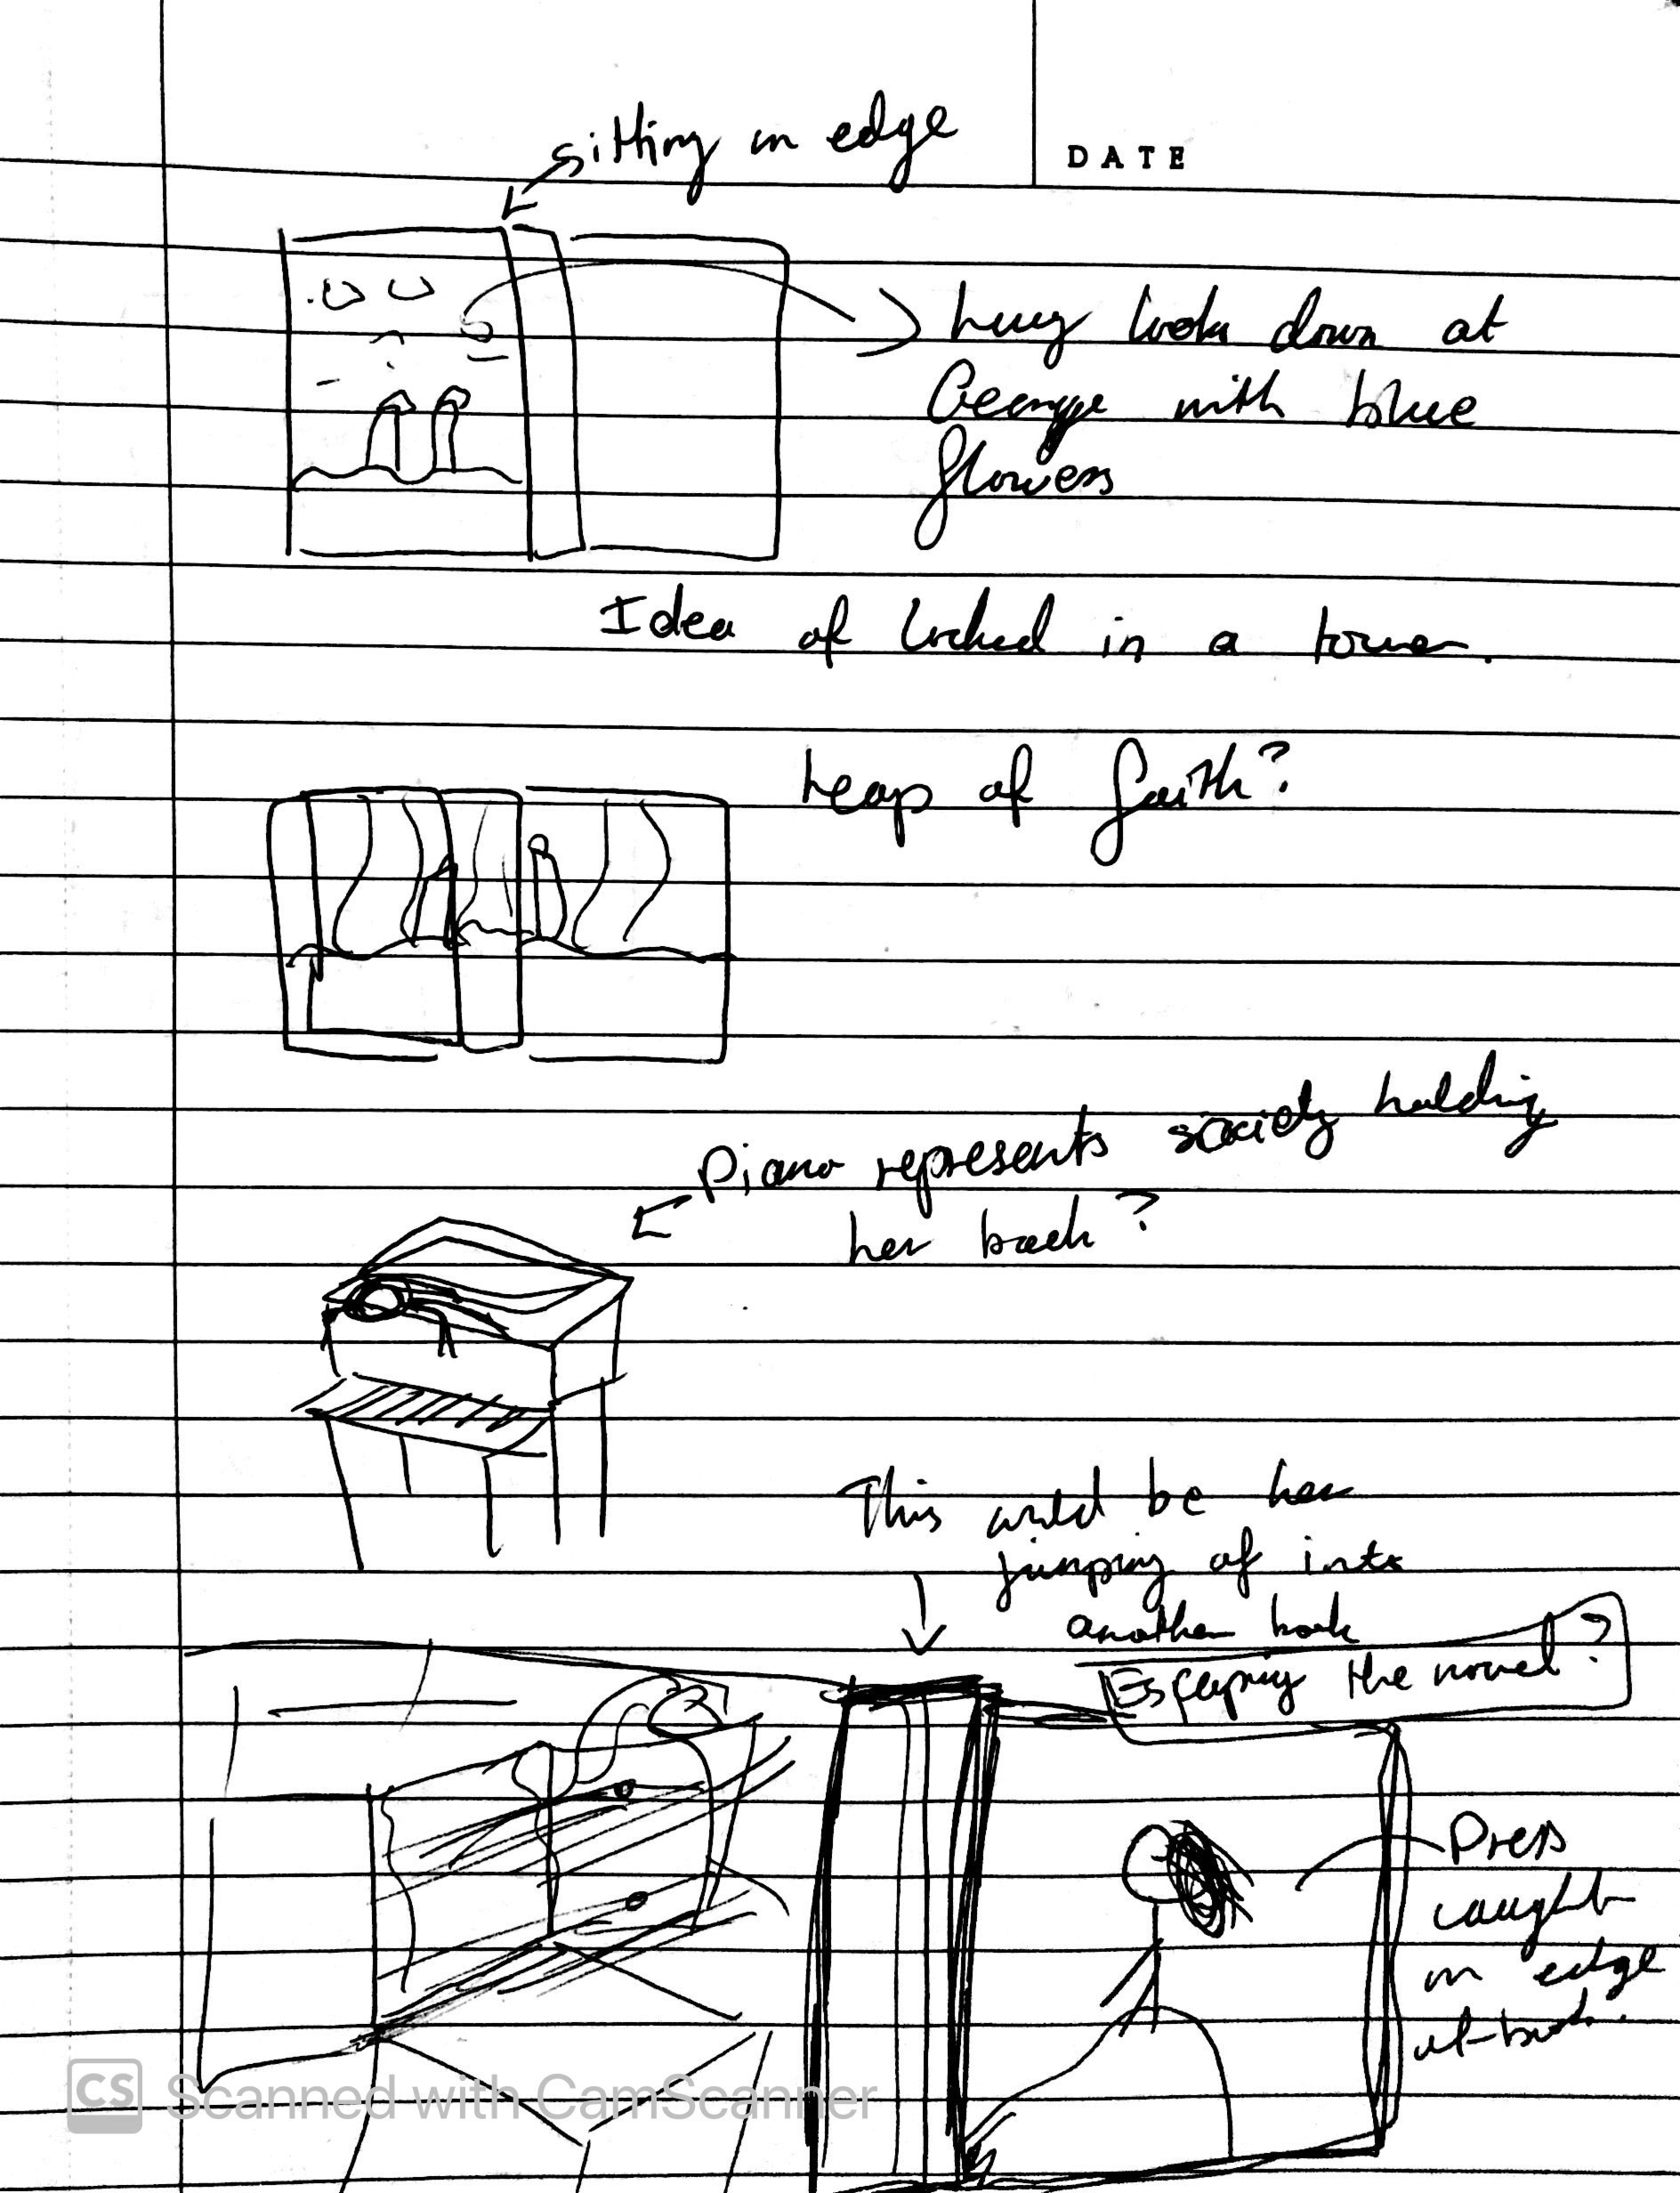 sitting on edge
DATE
Lucy looks down at
George with blue
flowers
Idea of locked in a tower.
Leap of faith?
Piano represents society holding
her back?
This could be her
jumping of into
another book
Escaping the novel?
Dress
caught
on edge
of book.
CS Scanned with CamScanner